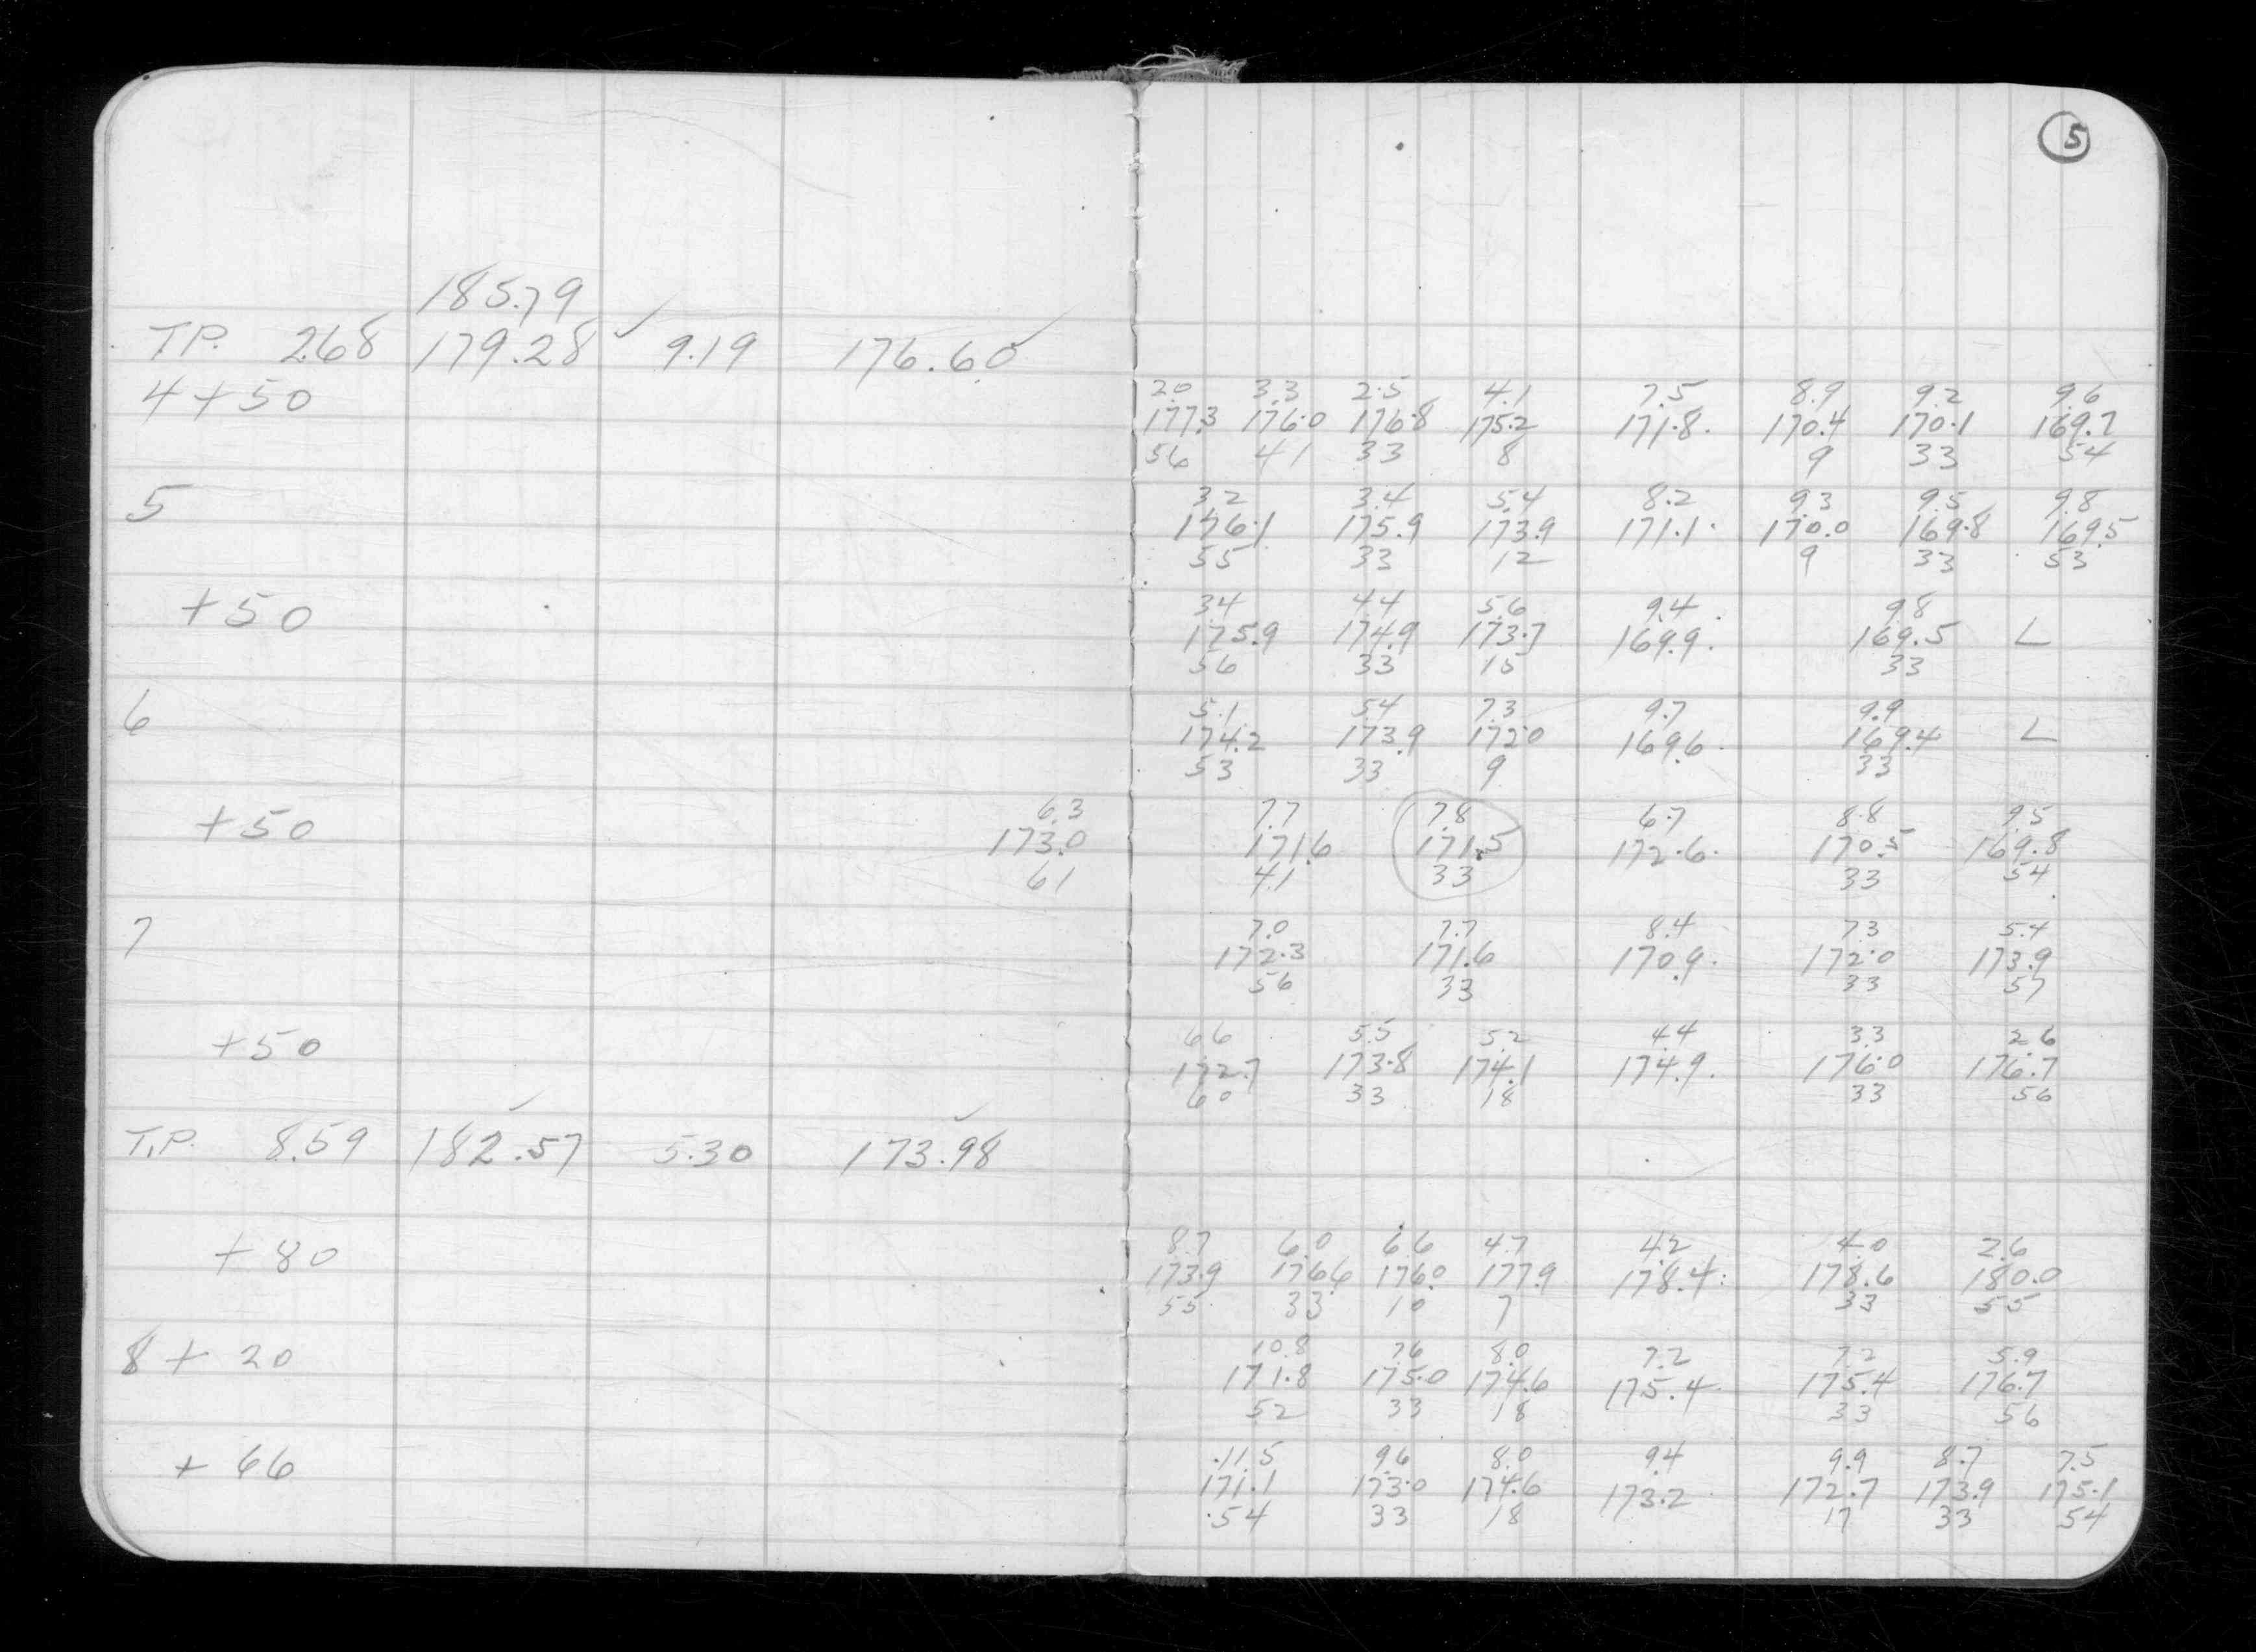 5
185.79
T.P. 2.68 179.28 9.19 176.60
4+50
2.0 3.3 2.5 4.1 7.5 8.9 9.2 9.6
177.3 176.0 176.8 175.2 171.8 170.4 170.1 169.7
56 41 33 8 9 33 54
5
3.2 3.4 5.4 8.2 9.3 9.5 9.8
176.1 175.9 173.9 171.1 170.0 169.8 169.5
55 33 12 9 33 53
+50
3.4 4.4 5.6 9.4 9.8
175.9 174.9 173.7 169.9 169.5 L
56 33 15 33
6
5.1 5.4 7.3 9.7 9.9
174.2 173.9 172.0 169.6 169.4 L
53 33 9 33
+50
6.3 7.7 7.8 6.7 8.8 9.5
173.0 171.6 171.5 172.6 170.5 169.8
61 41 33 33 54
7
7.0 7.7 8.4 7.3 5.4
172.3 171.6 170.9 172.0 173.9
56 33 33 57
+50
6.6 5.5 5.2 4.4 3.3 2.6
172.7 173.8 174.1 174.9 176.0 176.7
60 33 18 33 56
T.P. 8.59 182.57 5.30 173.98
+80
8.7 6.0 6.6 4.7 4.2 4.0 2.6
173.9 176.6 176.0 177.9 178.4 178.6 180.0
55 33 10 7 33 55
8+20
10.8 7.6 8.0 7.2 7.2 5.9
171.8 175.0 174.6 175.4 175.4 176.7
52 33 18 33 56
+66
11.5 9.6 8.0 9.4 9.9 8.7 7.5
171.1 173.0 174.6 173.2 172.7 173.9 175.1
54 33 18 17 33 54